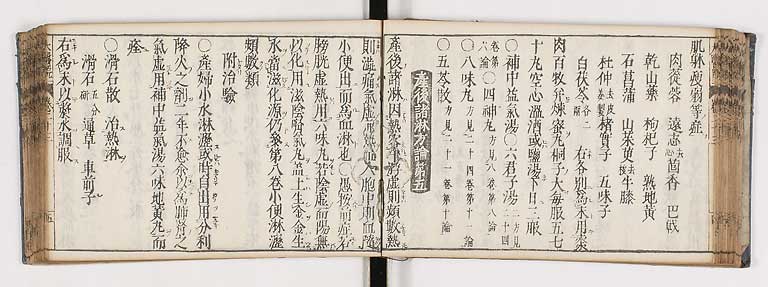 肌躰瘦弱等症
肉蓯蓉 遠志去心 茴香 巴戟
乾山藥 枸杞子 熟地黃
石菖蒲 山茱萸去核 牛膝
杜仲去皮姜製 楮實子 五味子
白茯苓各二 右各別為末用棗
肉百枚并煉蜜丸桐子大每服五七
十丸空心溫酒或鹽湯下日三服
○補中益氣湯○六君子湯二方見二十四
卷第六論 ○四神丸方見八卷第八論
○八味丸方見二十四卷第十一論
○五苓散方見二十一卷第十論
產後諸淋方論第五
產後諸淋因熱客於脬虛則頻數熱
則澁痛氣虛兼熱血入胞中則血隨
小便出而為血淋也○愚按前症若
膀胱虛熱用六味丸若陰虛而陽無
以化用滋陰腎氣丸蓋土生金金生
水當滋化源仍參第八卷小便淋瀝
頻數類
附治驗
○產婦小水淋瀝或時自出用分利
降火之劑二年不愈余以為肺腎之
氣虛用補中益氣湯六味地黃丸而
痊
○滑石散 治熱淋
滑石五分研 通草 車前子
右為末以漿水調服